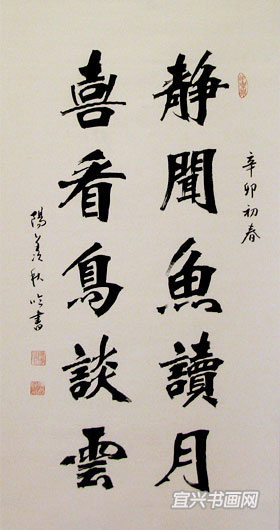 辛卯初春
静聞魚讀月
喜看鳥談雲
陽羨秋吟書
宜兴书画网